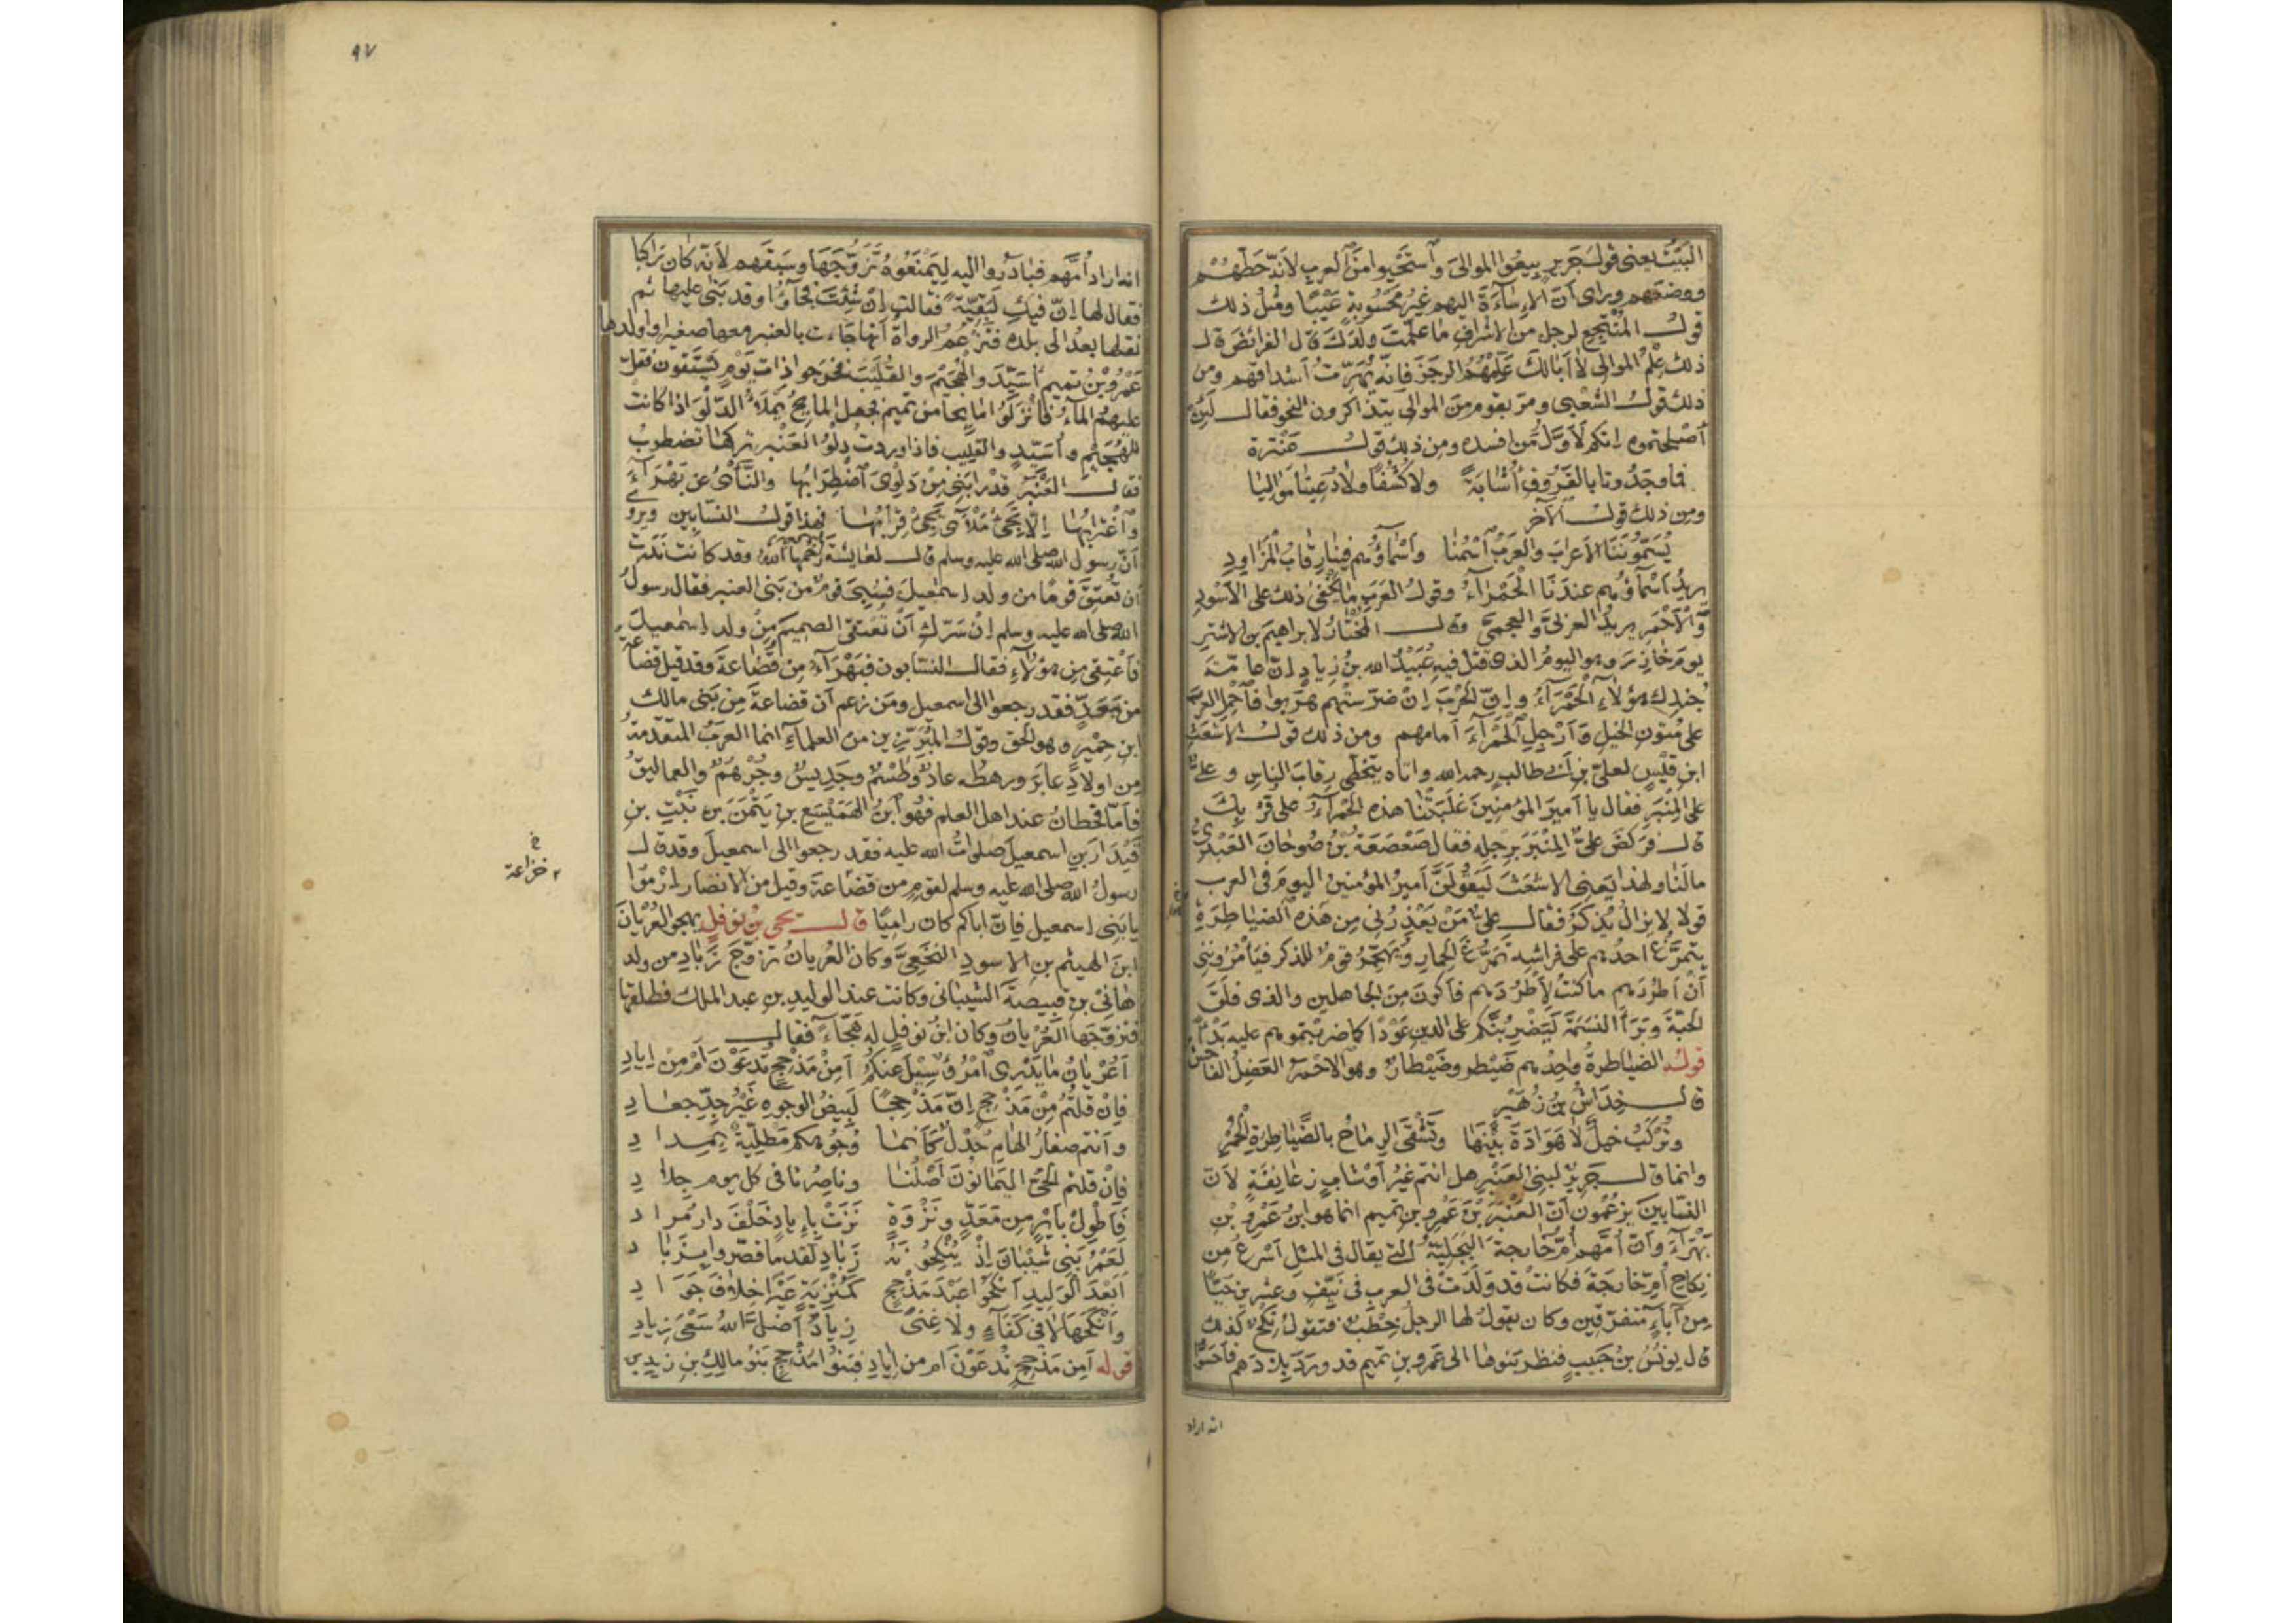 البيت يعنى قولَ جرير بيعوا الموالىَ وٱستحيوا منَ العربِ لانه حَطّهُمْ
ووضعهم ورأى أنّ الإِسآءةَ اليهم غيرُ محسُوبةٍ عَيْبًا ومثل ذلك
قولُ المُنْتجِعِ لرجل من الاشرافِ ما علّمتَ ولدَك قال الفرائضَ قال
ذلك عِلْمُ الموالى لا أبا لكَ عَلِّمْهُمُ الرجَزَ فانّه يُهَرِّتُ أشداقهم ومن
ذلك قولُ الشعبى ومرّ بقوم من الموالى يتذاكرون النحو فقال لَئِنْ
أصْلحتموه إنكم لَأوَّلُ مَن افسده ومن ذلك قول عَنْترة
فما وجَدُونا بالفَرُوقِ أُشابَةً ولا كُشُفًا ولا دُعِينا مَوَالِيا
ومن ذلك قول الآخر
يُسَمُّونَنَا الاَعرابَ والعَربُ ٱسْمُنا وَأَسْماؤُهم فينا رِقابُ المْزَاودِ
يريدُ أسْمآؤهم عندَنَا الْحَمْرآءُ وقولُ العَربِ ما يَخْفى ذلك على الاَسْودِ
وَٱلْأحْمَرِ يريدُ العربىَّ والعجمىَّ وقال المُخْتارُ لابراهيمَ بنِ الاشترِ
يومَ خازِرَ وهو اليومُ الذى قُتلَ فيه عُبَيْدُ الله بنُ زيادٍ إنّ عامّةَ
جُندِكَ هؤلاءِ الْحَمْرَآءُ وإنّ الحَربَ إنْ ضَرّسَتْهم هَرَبوا فَٱحْمِلِ العربَ
على مُتونِ الخيلِ وَأَرْجِلِ ٱلْحَمْرآءَ أمامهم ومن ذلك قول الاشعثِ
ابنِ قَيْسٍ لعلىِّ بنِ أبى طالبٍ رحمه الله واتاه يتخطّى رِقابَ الناسِ وعلىٌّ
على المِنْبَرِ فقال يا أميرَ المؤمنينَ غلَبَتْنا هذه الحَمْرآءُ على قُرْبِكَ
قال فرَكضَ علىٌّ المِنْبَرَ برِجلِه فقال صَعْصَعَةُ بنُ صُوحانَ العَبْدىُّ
ما لَنا ولهذا يَعنِى الاشعَثَ لَيَقُولَنَّ أميرُ المؤمنين اليومَ فى العرب
قولا لا يزالُ يُذكرُ فقال علىٌّ مَنْ يَعْذِرُنى مِن هذه الضياطِرَةِ
يتمرَّغُ احدُهم على فراشِه تَمَرُّغَ الحِمارِ ويُهَجِّرُ قومٌ للذكر فيأمُرُوننى
أنْ أطرُدَهم ما كنتُ لِأطرُدَهم فأكونَ مِنَ الجاهلين والذى فلَقَ
الحبّةَ وبَرَأ النسَمَةَ لَيَضْرِبُنّكم على الدين عَوْدًا كما ضربتموهم عليه بَدْأً
قوله الضياطرةُ واحِدُهم ضَيْطر وضَيْطارٌ وهو الاحمرُ العَضِلُ الفاحش
قال خِدَاشُ بنُ زُهَيْرٍ
وتُركَبُ خيلٌ لا هَوَادَةَ بيْنَها وتَشْقَى الرماحُ بالضَّياطِرةِ الحُمْرِ
وانما قال جَريرٌ لبنِى العَنْبَرِ هل انتم غيرُ أَوْشابٍ زَعانِفَةٍ لاَنّ
النسّابينَ يزعُمُون أنّ العَنْبَرَ بنَ عَمرِو بنِ تميمٍ انما هو ابنُ عَمْرِو بْنِ
بَهْرَآءَ وأنّ أُمَّهم أُمُّ خارجةَ البَجَلِيّةُ التى يقال فى المثلِ أَسْرعُ مِن
نِكاحِ أُمِّ خارِجَةَ فكانتْ قد وَلَدتْ فى العربِ فى نيّفٍ وعشرينَ حَيًّا
مِن آباءٍ متفرّقين وكان يقولُ لها الرجلُ خِطْبٌ فتقول نِكْحٌ كذلك
قال يونُسُ بنُ حَبيبٍ فنظر بَنُوها الى عَمرِو بنِ تميمٍ قد وَرَدَ بلادَهم فأحَسُّوا
انه اراد
٩٧
انه اراد أُمَّهم فبادَروا اليه لِيَمْنَعُوهُ تَزَوُّجَهَا وسبَقهم لأنّه كان راكبا
فقال لها إنّ فيكِ لَبَقِيّةً فقالت إنْ شِئتَ فجآؤُا وقد بَنى عليها ثم
نقلها بعدُ الى بلده فتزعُمُ الرواةُ أنها جآءت بالعنبر معها صغيرا واولدها
عَمرُو بْنُ تميمٍ أُسَيِّدَ والهُجَيْمَ والقُلَيْبَ فخرجوا ذاتَ يَوْمٍ يَسْتَقون فقلّ
عليهمُ المآءُ فأنْزَلُوا مايِحًا من تميم فجعل المايحُ يَملأ الدّلْوَ اذا كانت
للهُجَيْمِ وأُسَيِّدٍ والقُلَيْبِ فاذا وردتْ دلْوُ العَنْبرِ تركها تضطرِبُ
فقال العَنْبَرُ قد رابَنِى مِنْ دَلْوِىَ ٱضْطِرابُها والنّأْىُ عن بَهْرآءَ
وٱغترابُها إلّا تَجِئْ مَلْأَى يَجِئْ قِرابُها فهذا قول النسّابين ويروى
أنّ رسول الله صلى الله عليه وسلم قال لعايشةَ رحمها الله وقد كانت نَذَرت
ان تُعتِقَ قومًا من ولد إسمٰعيلَ فسُبِىَ قومٌ من بَنى العنبر فقال رسول
الله صلى الله عليه وسلم إنْ سَرّكِ أنْ تُعتقى الصميمَ مِنْ ولد إسمٰعيلَ
فأعْتِقى مِن هؤلآءِ فقال النسّابون فبَهْرآءُ مِن قُضاعةَ وقد قيل قضاعةُ
من مَعَدٍّ فقد رجعوا الى اسمعيل ومَن زعم أن قضاعةَ مِن بَنى مالك
ابنِ حِمْيَرٍ وهو الحق وقول المُبَرّزين من العلمآءِ انما العربُ المتقدّمةُ
مِن اولادِ عابَرَ ورهطُه عادٌ وطَسْمٌ وجَديسٌ وجُرْهُمٌ والعماليقُ
فأمّا قحطانُ عند اهل العلم فهُو ابنُ الهَمَيْسَعِ بنِ يَتْمَنَ بنِ نَبْتِ بنِ
قَيْذارَ بنِ اسمعيلَ صلواتُ الله عليه فقد رجعوا الى اسمعيلَ وقد قال
رسولُ الله صلى الله عليه وسلم لقومٍ من قضاعةَ وقيل من الانصار ارْمُوا
خ
خزاعة
يا بَنِى إسمعيل فإنّ اباكم كان راميًا قال يحيى بنُ نوفلٍ يهجو العُرْيانَ
ابنَ الهيثمِ بنِ الاسودِ النخَعِىَّ وكان العُريانُ تزوّجَ زَبادِ من ولد
هانئِ بنِ قبيصةَ الشيبانى وكانت عند الوليدِ بنِ عبد الملك فطلقها
فتزوّجها العُرْيانُ وكان ابنُ نوفلٍ له هَجّاءً فقال
أعُرْيانُ ما يَدْرِى ٱمْرُؤٌ سِيلَ عنكمُ أَمِنْ مَذْحِجٍ تُدعَوْنَ أمْ مِنْ إيادِ
فإنْ قلتُمُ مِنْ مَذْحِجٍ إنّ مَذْحِجًا لَبِيضُ الوجوهِ غَيْرُ جِدِّ جِعادِ
وأنتم صغارُ الهامِ حُدْلٌ كأنما وُجُوهُكم مَطْلِيّةٌ بمِدادِ
فإنْ قلتمُ الحىُّ اليمانونَ أصْلُنا وناصِرُنا فى كل يوم جِلادِ
فأَطْوِلْ بأيْرٍ مِن مَعَدٍّ ونَزْوَةٍ نَزَتْ بإيادٍ خَلْفَ دار مُرادِ
لَعَمْرُ بَنِى شَيْبانَ إذْ يُنْكِحُونَهُ زَبادِ لقد ما قصّروا بِزَبادِ
أبَعْدَ الوَليدِ أنْكَحُوا عَبْدَ مَذْحِجٍ كَمُنْزِيَةٍ عَيْرًا خِلافَ جَوَادِ
وأنْكَحَهَا لا فى كَفاءٍ ولا غِنًى زِيادٌ أضَلَّ ٱللهُ سَعْىَ زِيادِ
قوله أمِن مَذْحِجٍ تُدعَوْنَ أم من إيادِ فبَنُوا مَذْحِجٍ بَنُو مالكِ بنِ زيدِ بن